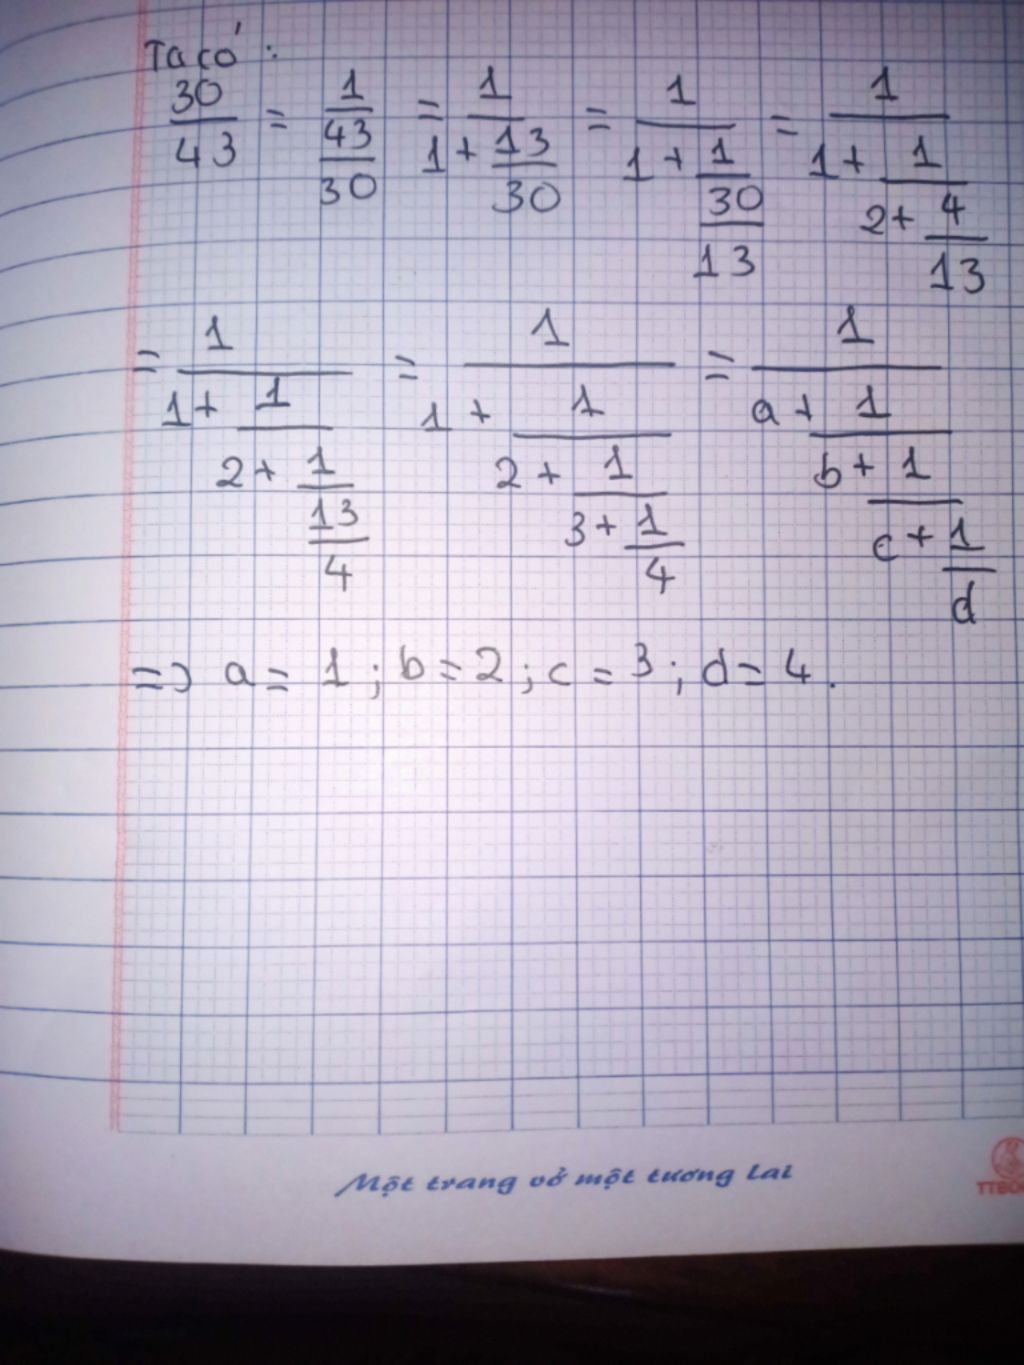 Ta có:
30/43 = 1/(43/30) = 1/(1 + 13/30) = 1/(1 + 1/(30/13)) = 1/(1 + 1/(2 + 4/13))
= 1/(1 + 1/(2 + 1/(13/4))) = 1/(1 + 1/(2 + 1/(3 + 1/4))) = 1/(a + 1/(b + 1/(c + 1/d)))
=> a = 1 ; b = 2 ; c = 3 ; d = 4 .
Một trang vở một tương lai